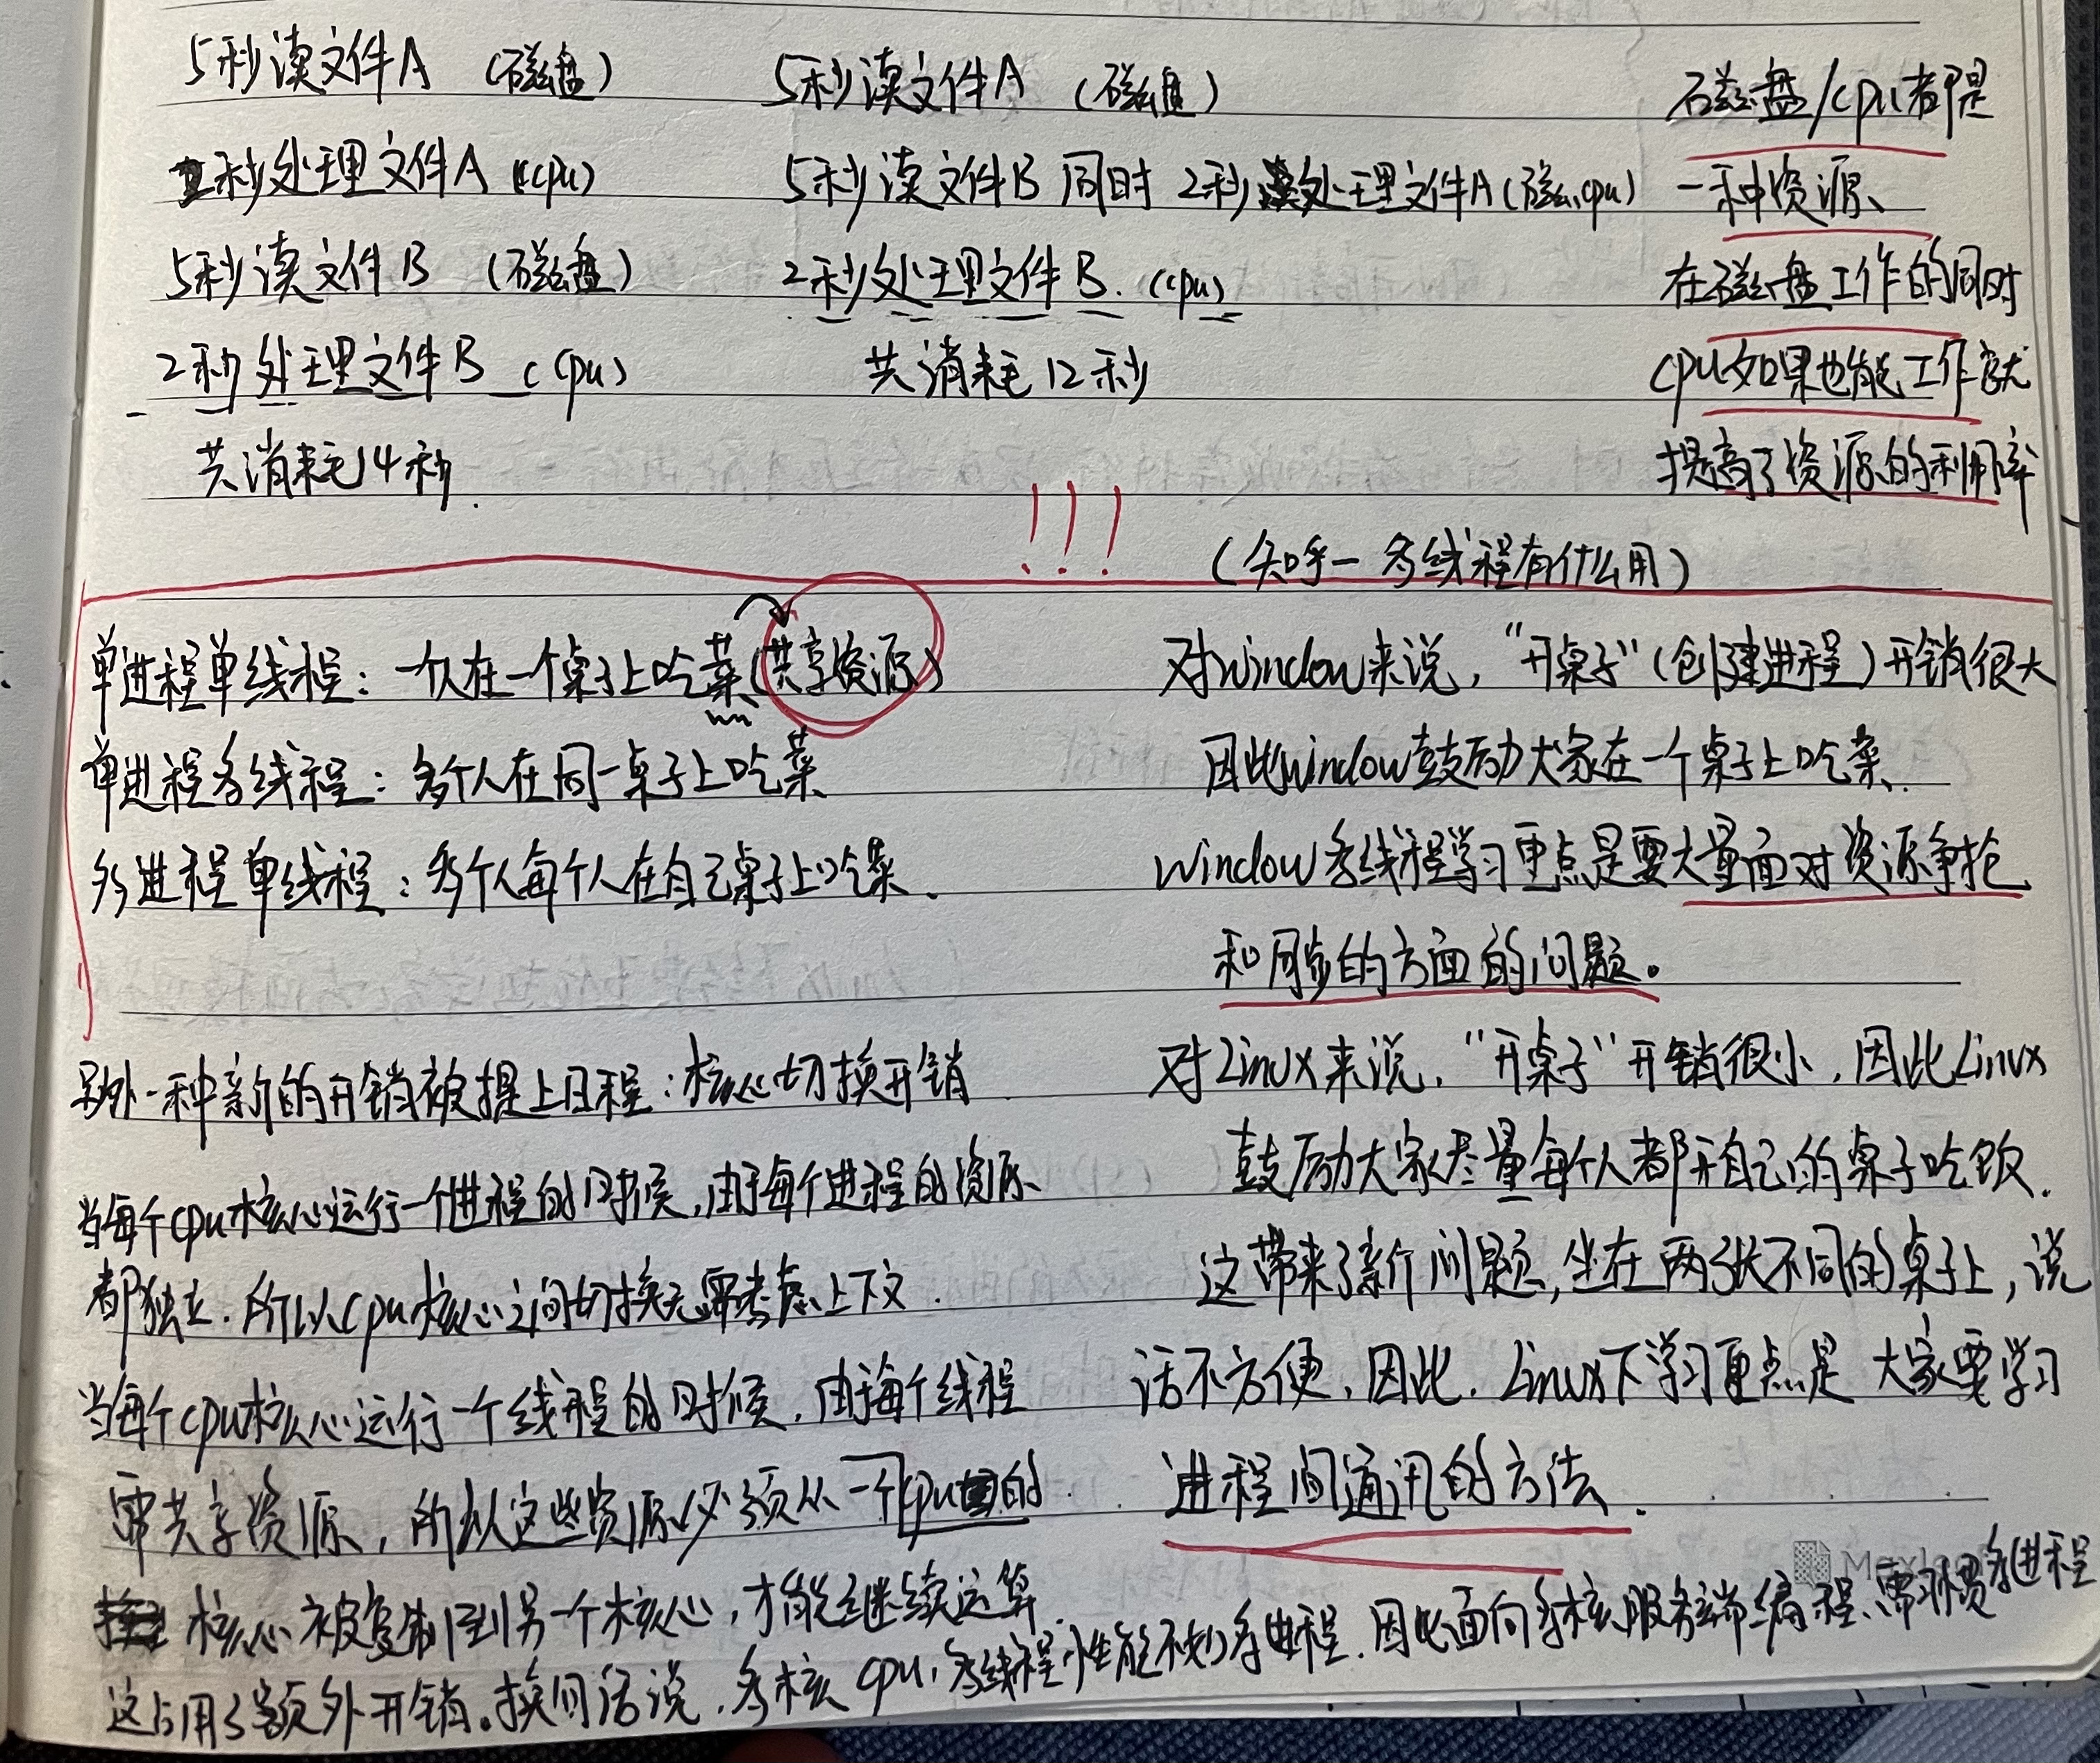 5秒读文件A (磁盘)
2秒处理文件A (cpu)
5秒读文件B (磁盘)
2秒处理文件B (cpu)
共消耗14秒.
5秒读文件A (磁盘)
5秒读文件B 同时 2秒处理文件A(磁盘,cpu)
2秒处理文件B. (cpu)
共消耗12秒
磁盘/cpu都是
一种资源、
在磁盘工作的同时
cpu如果也能工作就
提高了资源的利用率
!!!
(知乎一多线程有什么用)
单进程单线程: 一个人在一个桌子上吃菜(共享资源)
单进程多线程: 多个人在同一桌子上吃菜
多进程单线程: 多个人每个人在自己桌子上吃菜.
另外一种新的开销被提上日程:核心切换开销
当每个cpu核心运行一个进程的时候,由于每个进程的资源
都独立.所以cpu核心之间切换无需考虑上下文.
当每个cpu核心运行一个线程的时候,由于每个线程
需共享资源,所以这些资源必须从一个cpu的
核心被复制到另一个核心,才能继续运算.
这占用了额外开销。换句话说,多核cpu,多线程性能不如多进程.因此面向多核服务端编程、需习惯多进程
对window来说, "开桌子"(创建进程)开销很大
因此window鼓励大家在一个桌子上吃菜.
window多线程学习重点是要大量面对资源争抢
和同步的方面的问题。
对Linux来说, "开桌子"开销很小,因此Linux
鼓励大家尽量每个人都开自己的桌子吃饭.
这带来了新个问题,坐在两张不同的桌子上,说
话不方便,因此,Linux下学习重点是大家要学习
进程间通讯的方法.